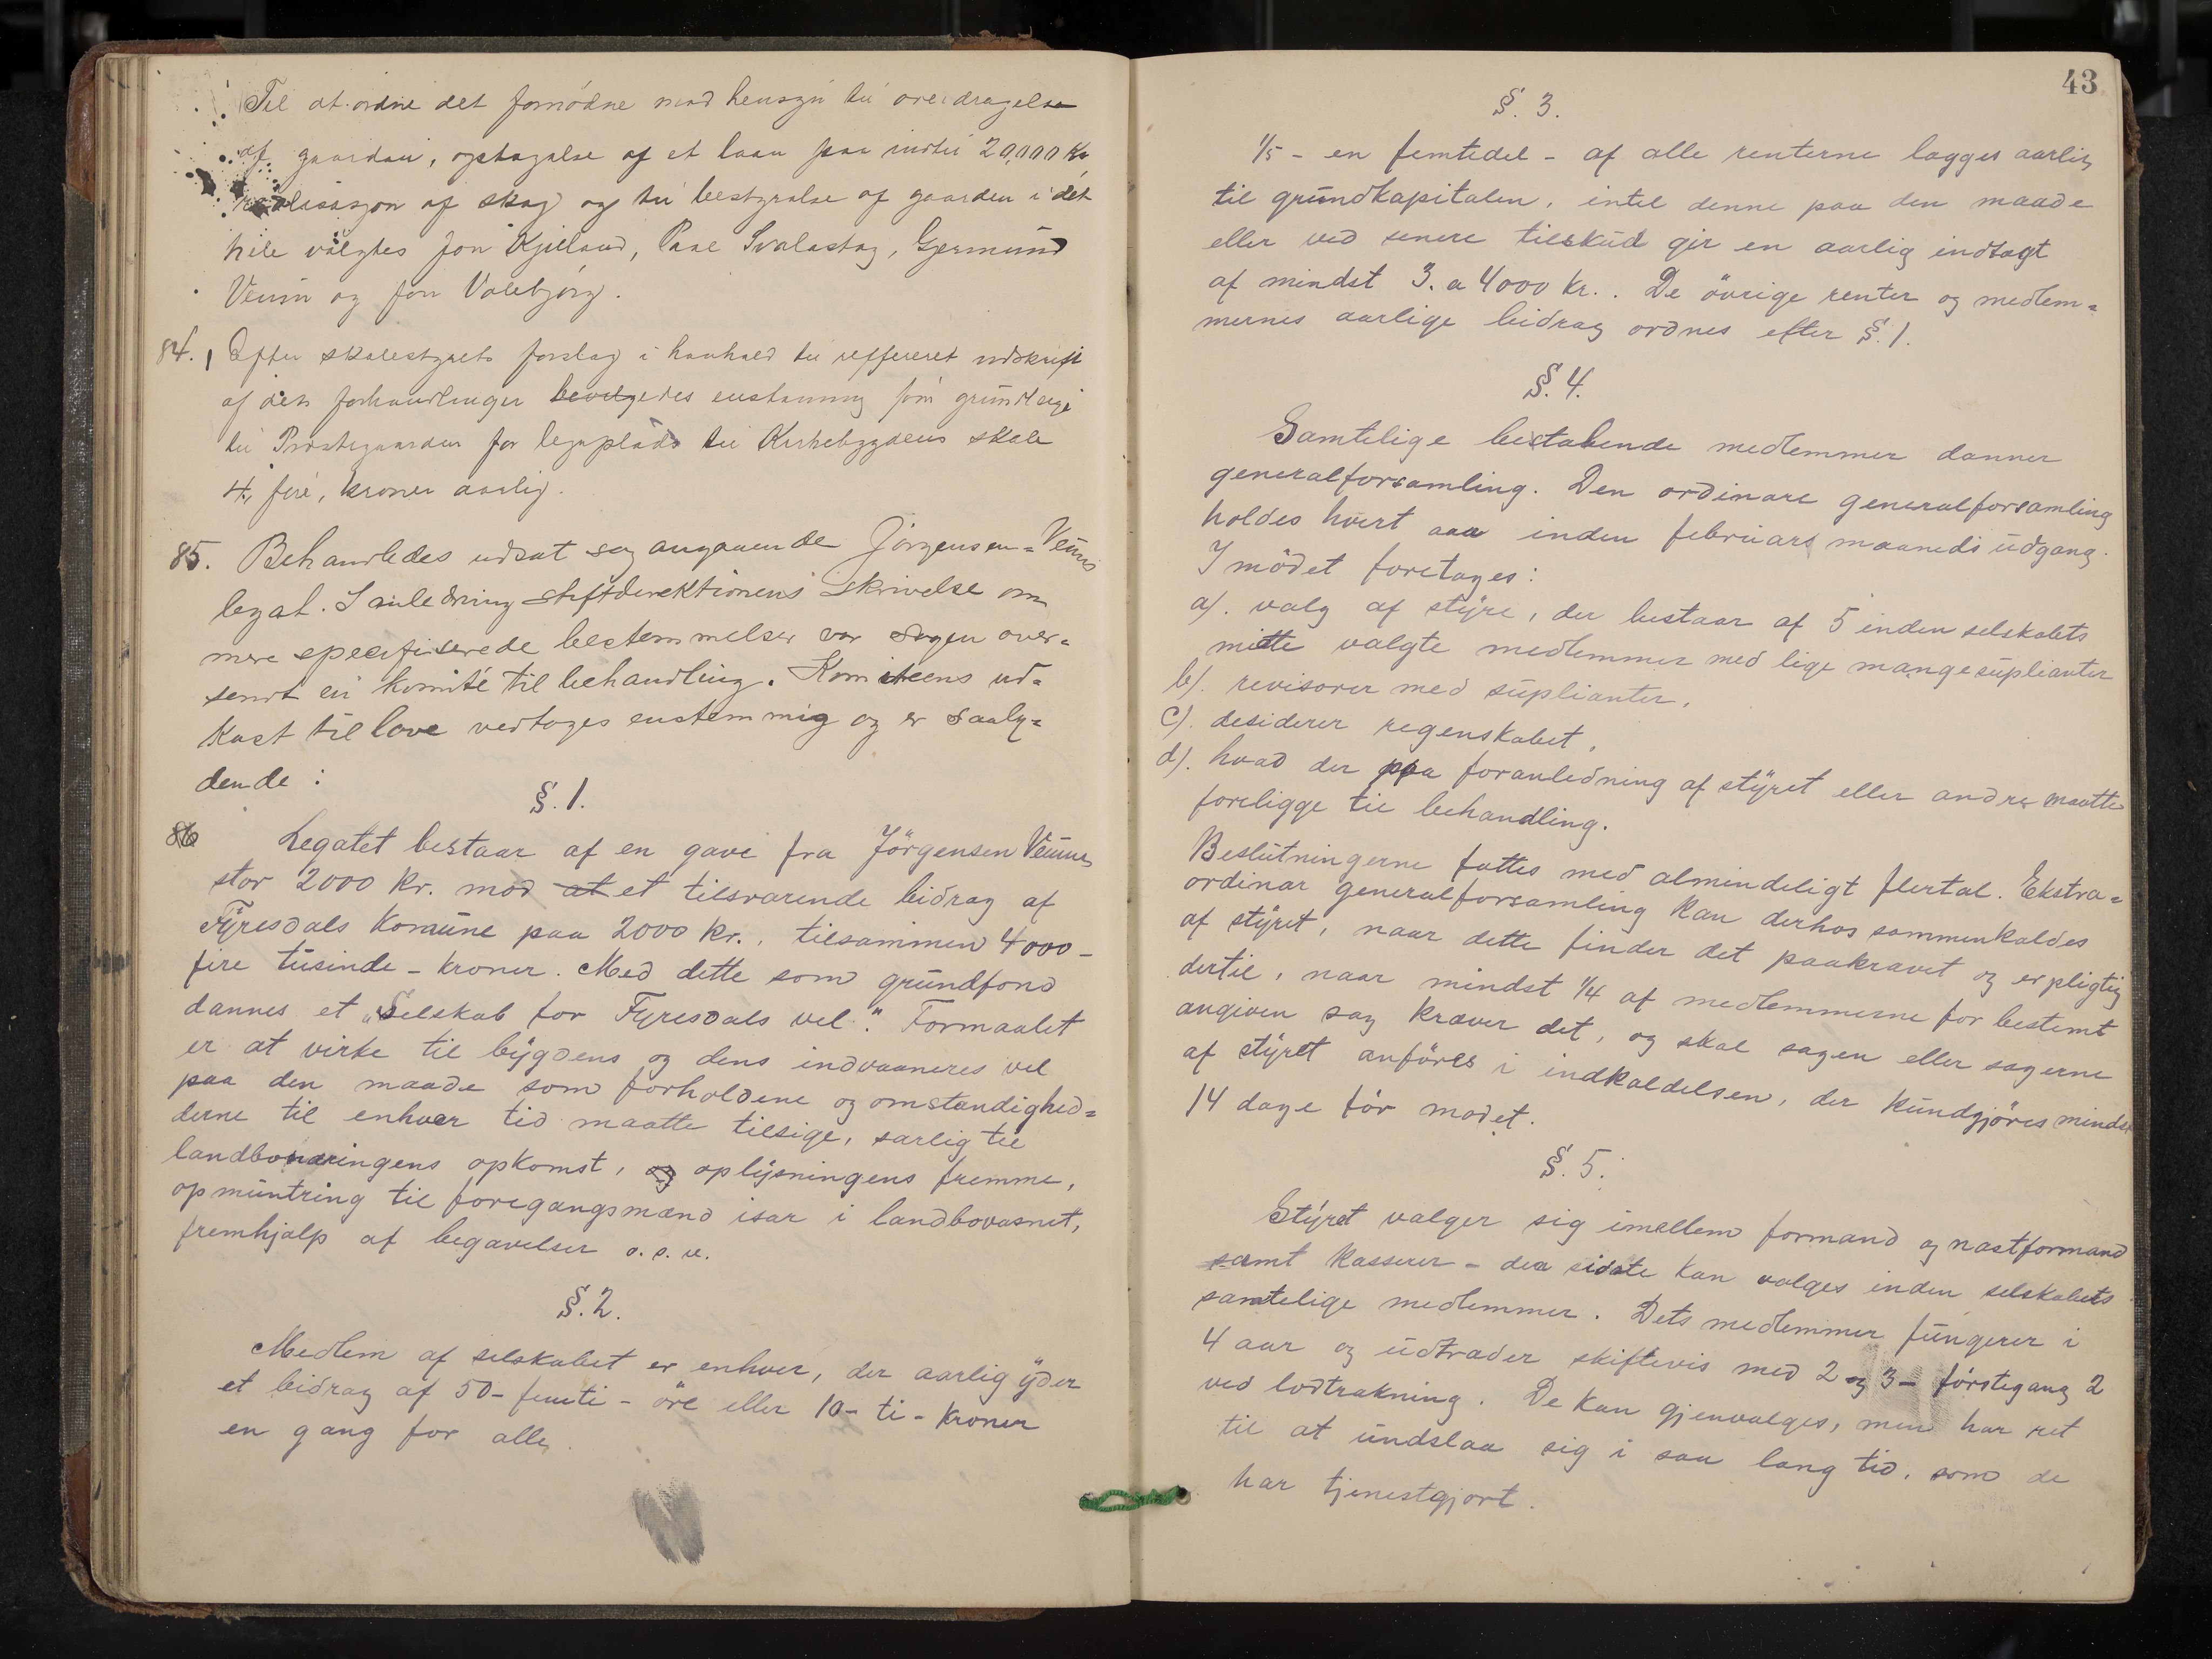 Til at ordne det fornødne med hensyn til overdragelse
af gaarden, optagelse af et laan paa indtil 20,000 Kr,
realisasjon af skog og til bestyrelse af gaarden i det
hele valgtes Jon Kjilland, Paal Svalastog, Gjermund
Veum og Jon Valebjørg.
84. Efter skolestyrets forslag i henhold til refereret udskrift
af dets forhandlinger bevilgedes enstemmig som grundleige
til Præstegaarden for legeplads til Kirkebygdens skole
4, fire, kroner aarlig.
85. Behandledes udsat sag angaaende Jörgensen-Veums
legat. I anledning stiftdirektionens skrivelse om
mere specifiserede bestemmelser var sagen over=
sendt en komité til behandling. Komiteens ud=
kast til love vedtoges enstemmig og er saaly=
dende:
§. 1.
86 Legatet bestaar af en gave fra Jörgensen Veum
stor 2000 kr. mod at et tilsvarende bidrag af
Fyresdals komune paa 2000 kr., tilsammen 4000 -
fire tusinde - kroner. Med dette som grundfond
dannes et „Selskab for Fyresdals vel". Formaalet
er at virke til bygdens og dens indvaaneres vel
paa den maade som forholdene og omstændighed=
derne til enhver tid maatte tilsige, særlig til
landbonæringens opkomst, og oplysningens fremme,
opmuntring til foregangsmænd især i landbovæsnet,
fremhjælp af begavelser o.s.v.
§. 2.
Medlem af selskabet er enhver, der aarlig yder
et bidrag af 50 - femti - öre eller 10 - ti - kroner
en gang for alle.
43
§. 3.
1/5 - en femtedel - af alle renterne lægges aarlig
til grundkapitalen, intil denne paa den maade
eller ved senere tilskud gir en aarlig indtægt
af mindst 3. a 4000 kr.. De övrige renter og medlem=
mernes aarlige bidrag ordnes efter §. 1.
§. 4.
Samtlige betalende medlemmer danner
generalforsamling. Den ordinære generalforsamling
holdes hvert aar inden februars maaneds udgang.
I mödet foretages:
a). valg af styre, der bestaar af 5 inden selskabets
midte valgte medlemmer med lige mange suplianter
b). revisorer med suplianter,
c). desiderer regenskabet,
d). hvad der paa foranledning af styret eller andre maatte
foreligge til behandling.
Beslutningerne fattes med almindeligt flertal. Ekstra=
ordinær generalforsamling kan derhos sammenkaldes
af styret, naar dette finder det paakrævet og er pligtig
dertil, naar mindst 1/4 af medlemmerne for bestemt
angiven sag kræver det, og skal sagen eller sagerne
af styret anföres i indkaldelsen, der kundgjöres mindst
14 dage för mødet.
§. 5.
Styret vælger sig imellem formand og næstformand
samt kasserer - den sidste kan vælges inden selskabets
samtelige medlemmer. Dets medlemmer fungerer i
4 aar og udtræder skiftevis med 2 og 3 - förstegang 2
ved lodtrækning. De kan gjenvælges, men har ret
til at undslaa sig i saa lang tid, som de
har tjenestgjort.